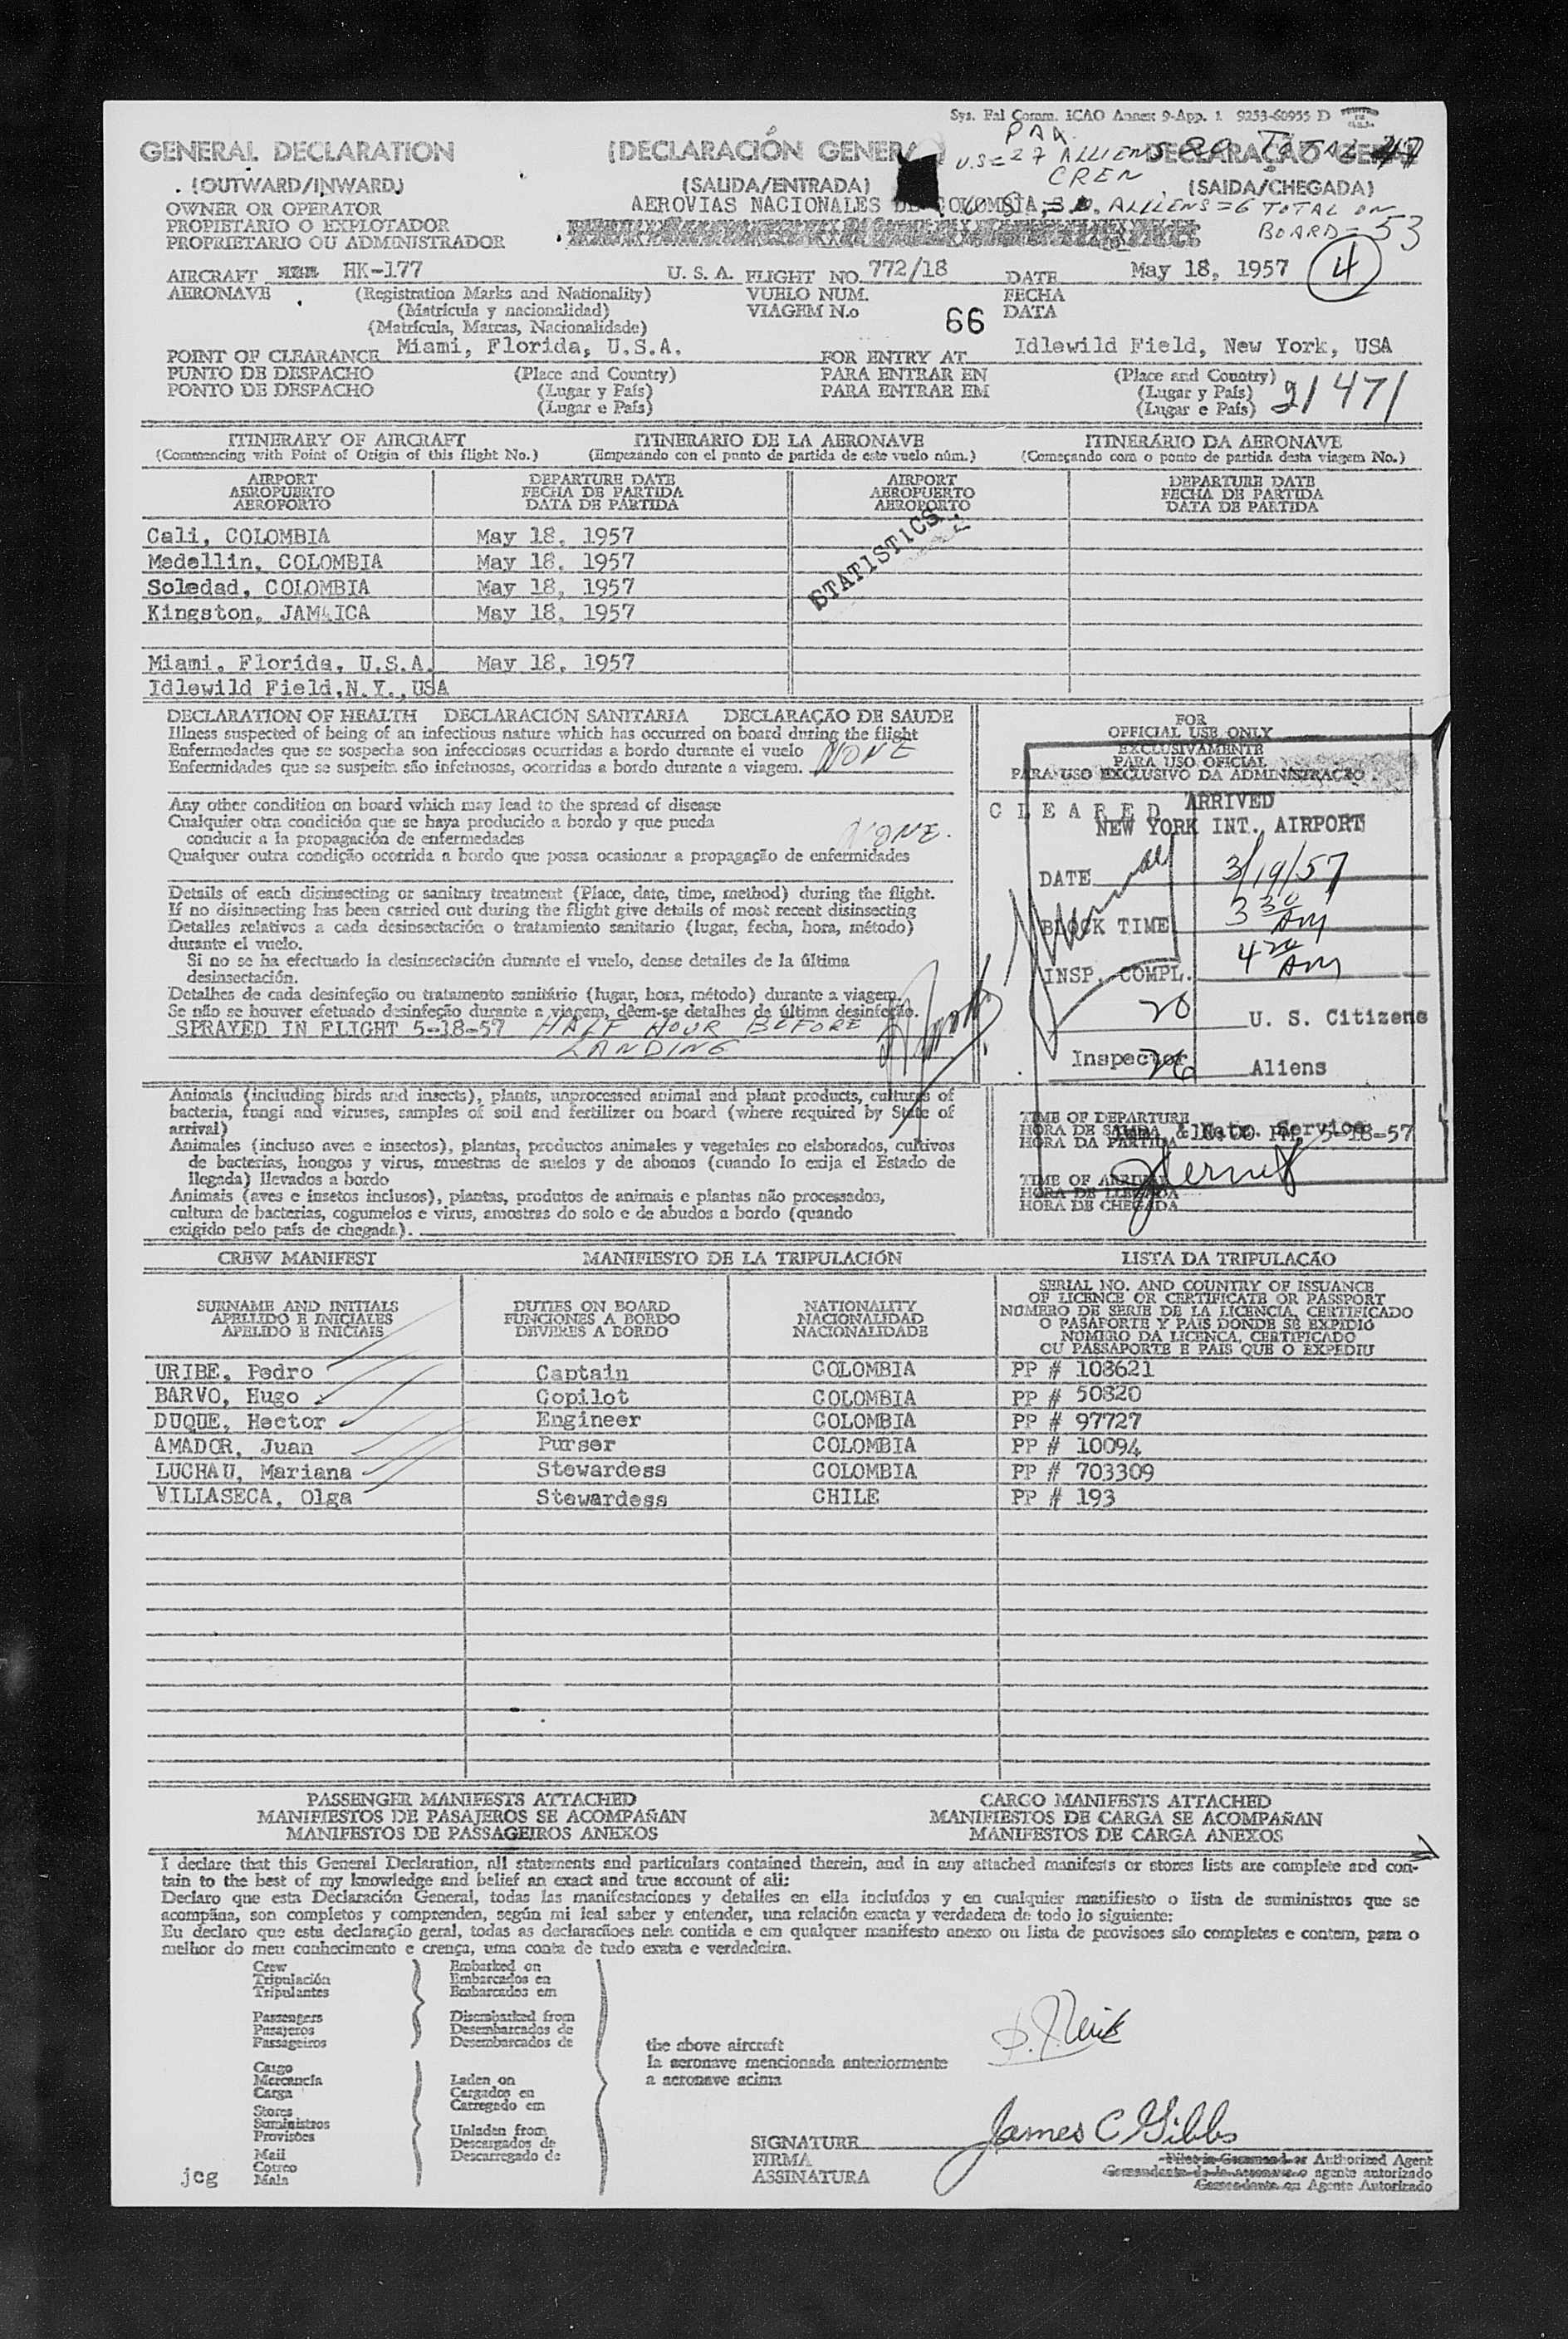 Sys. Fal Comm. ICAO Annex 9-App. 1 9253-60955 D
PAX
U.S=27 ALLIENS 20 TOTAL 47
GENERAL DECLARATION (DECLARACIÓN GENERAL) DECLARAÇÃO GERAL
CREW
(OUTWARD/INWARD) (SALIDA/ENTRADA) (SAIDA/CHEGADA)
OWNER OR OPERATOR AEROVIAS NACIONALES DE COLOMBIA, S.A. ALLIENS=6 TOTAL ON
PROPIETARIO O EXPLOTADOR BOARD=53
PROPRIETARIO OU ADMINISTRADOR
AIRCRAFT HK-177 U. S. A. FLIGHT NO. 772/18 DATE May 18, 1957 4
AERONAVE (Registration Marks and Nationality) VUELO NUM. FECHA
(Matrícula y nacionalidad) VIAGEM N.o 66 DATA
(Matrícula, Marcas, Nacionalidade)
POINT OF CLEARANCE Miami, Florida, U.S.A. FOR ENTRY AT Idlewild Field, New York, USA
PUNTO DE DESPACHO (Place and Country) PARA ENTRAR EN (Place and Country)
PONTO DE DESPACHO (Lugar y País) PARA ENTRAR EM (Lugar y País) 21471
(Lugar e País) (Lugar e País)
ITINERARY OF AIRCRAFT ITINERARIO DE LA AERONAVE ITINERÁRIO DA AERONAVE
(Commencing with Point of Origin of this flight No.) (Empezando con el punto de partida de este vuelo núm.) (Começando com o ponto de partida desta viagem No.)
AIRPORT DEPARTURE DATE AIRPORT DEPARTURE DATE
AEROPUERTO FECHA DE PARTIDA AEROPUERTO FECHA DE PARTIDA
AEROPORTO DATA DE PARTIDA AEROPORTO DATA DE PARTIDA
STATISTICS
Cali, COLOMBIA May 18, 1957
Medellin, COLOMBIA May 18, 1957
Soledad, COLOMBIA May 18, 1957
Kingston, JAMAICA May 18, 1957
Miami, Florida, U.S.A. May 18, 1957
Idlewild Field, N.Y., USA
DECLARATION OF HEALTH DECLARACIÓN SANITARIA DECLARAÇÃO DE SAUDE
Illness suspected of being of an infectious nature which has occurred on board during the flight
Enfermedades que se sospecha son infecciosas ocurridas a bordo durante el vuelo NONE
Enfermidades que se suspeita são infetuosas, ocorridas a bordo durante a viagem.
Any other condition on board which may lead to the spread of disease
Cualquier otra condición que se haya producido a bordo y que pueda
conducir a la propagación de enfermedades NONE.
Qualquer outra condição ocorrida a bordo que possa ocasionar a propagação de enfermidades
Details of each disinsecting or sanitary treatment (Place, date, time, method) during the flight.
If no disinsecting has been carried out during the flight give details of most recent disinsecting
Detalles relativos a cada desinsectación o tratamiento sanitario (lugar, fecha, hora, método)
durante el vuelo.
Si no se ha efectuado la desinsectación durante el vuelo, dense detalles de la última
desinsectación.
Detalhes de cada desinfeção ou tratamento sanitário (lugar, hora, método) durante a viagem.
Se não se houver efetuado desinfeção durante a viagem, dêem-se detalhes da última desinfeção.
SPRAYED IN FLIGHT 5-18-57 HALF HOUR BEFORE
LANDING
FOR
OFFICIAL USE ONLY
EXCLUSIVAMENTE
PARA USO OFICIAL
PARA USO EXCLUSIVO DA ADMINISTRAÇÃO
CLEARED ARRIVED
NEW YORK INT. AIRPORT
DATE 3/19/57
BLOCK TIME 3 30 AM
INSP. COMPL. 4 20 AM
20 U. S. Citizens
Inspector 26 Aliens
Animals (including birds and insects), plants, unprocessed animal and plant products, cultures of
bacteria, fungi and viruses, samples of soil and fertilizer on board (where required by State of
arrival)
Animales (incluso aves e insectos), plantas, productos animales y vegetales no elaborados, cultivos
de bacterias, hongos y virus, muestras de suelos y de abonos (cuando lo exija el Estado de
llegada) llevados a bordo
Animais (aves e insetos inclusos), plantas, produtos de animais e plantas não processados,
cultura de bacterias, cogumelos e virus, amostras do solo e de abudos a bordo (quando
exigido pelo país de chegada).
TIME OF DEPARTURE
HORA DE SALIDA & Natz. Service
HORA DA PARTIDA 10:00 PM, 5-18-57
TIME OF ARRIVAL
HORA DE LLEGADA
HORA DE CHEGADA
CREW MANIFEST MANIFIESTO DE LA TRIPULACIÓN LISTA DA TRIPULACÃO
SURNAME AND INITIALS DUTIES ON BOARD NATIONALITY SERIAL NO. AND COUNTRY OF ISSUANCE
APELLIDO E INICIALES FUNCIONES A BORDO NACIONALIDAD OF LICENCE OR CERTIFICATE OR PASSPORT
APELIDO E INICIAIS DEVERES A BORDO NACIONALIDADE NÚMERO DE SERIE DE LA LICENCIA, CERTIFICADO
O PASAPORTE Y PAIS DONDE SE EXPIDIÓ
NÚMERO DA LICENCA, CERTIFICADO
OU PASSAPORTE E PAIS QUE O EXPEDIU
URIBE, Pedro Captain COLOMBIA PP # 108621
BARVO, Hugo Copilot COLOMBIA PP # 50820
DUQUE, Hector Engineer COLOMBIA PP # 97727
AMADOR, Juan Purser COLOMBIA PP # 10094
LUCHAU, Mariana Stewardess COLOMBIA PP # 703309
VILLASECA, Olga Stewardess CHILE PP # 193
PASSENGER MANIFESTS ATTACHED CARGO MANIFESTS ATTACHED
MANIFIESTOS DE PASAJEROS SE ACOMPAÑAN MANIFIESTOS DE CARGA SE ACOMPAÑAN
MANIFESTOS DE PASSAGEIROS ANEXOS MANIFESTOS DE CARGA ANEXOS
I declare that this General Declaration, all statements and particulars contained therein, and in any attached manifests or stores lists are complete and con-
tain to the best of my knowledge and belief an exact and true account of all:
Declaro que esta Declaración General, todas las manifestaciones y detalles en ella incluídos y en cualquier manifiesto o lista de suministros que se
acompãna, son completos y comprenden, según mi leal saber y entender, una relación exacta y verdadera de todo lo siguiente:
Eu declaro que esta declaração geral, todas as declaracãoes nela contida e em qualquer manifesto anexo ou lista de provisoes são completas e contem, para o
melhor do meu conhecimento e crença, uma conta de tudo exata e verdadeira.
Crew Embarked on
Tripulación Embarcados en
Tripulantes Embarcados em
Passengers Disembarked from
Pasajeros Desembarcados de
Passageiros Desembarcados de
the above aircraft
la aeronave mencionada anteriormente
a aeronave acima
Cargo
Mercancía Laden on
Carga Cargados en
Carregado em
Stores
Suministros Unladen from
Provisões Descargados de
Mail Descarregado de
Correo
Mala
jcg
SIGNATURE James C Gibbs
FIRMA Pilot in Command or Authorized Agent
ASSINATURA Comandante de la aeronave o agente autorizado
Comandante ou Agente Autorizado